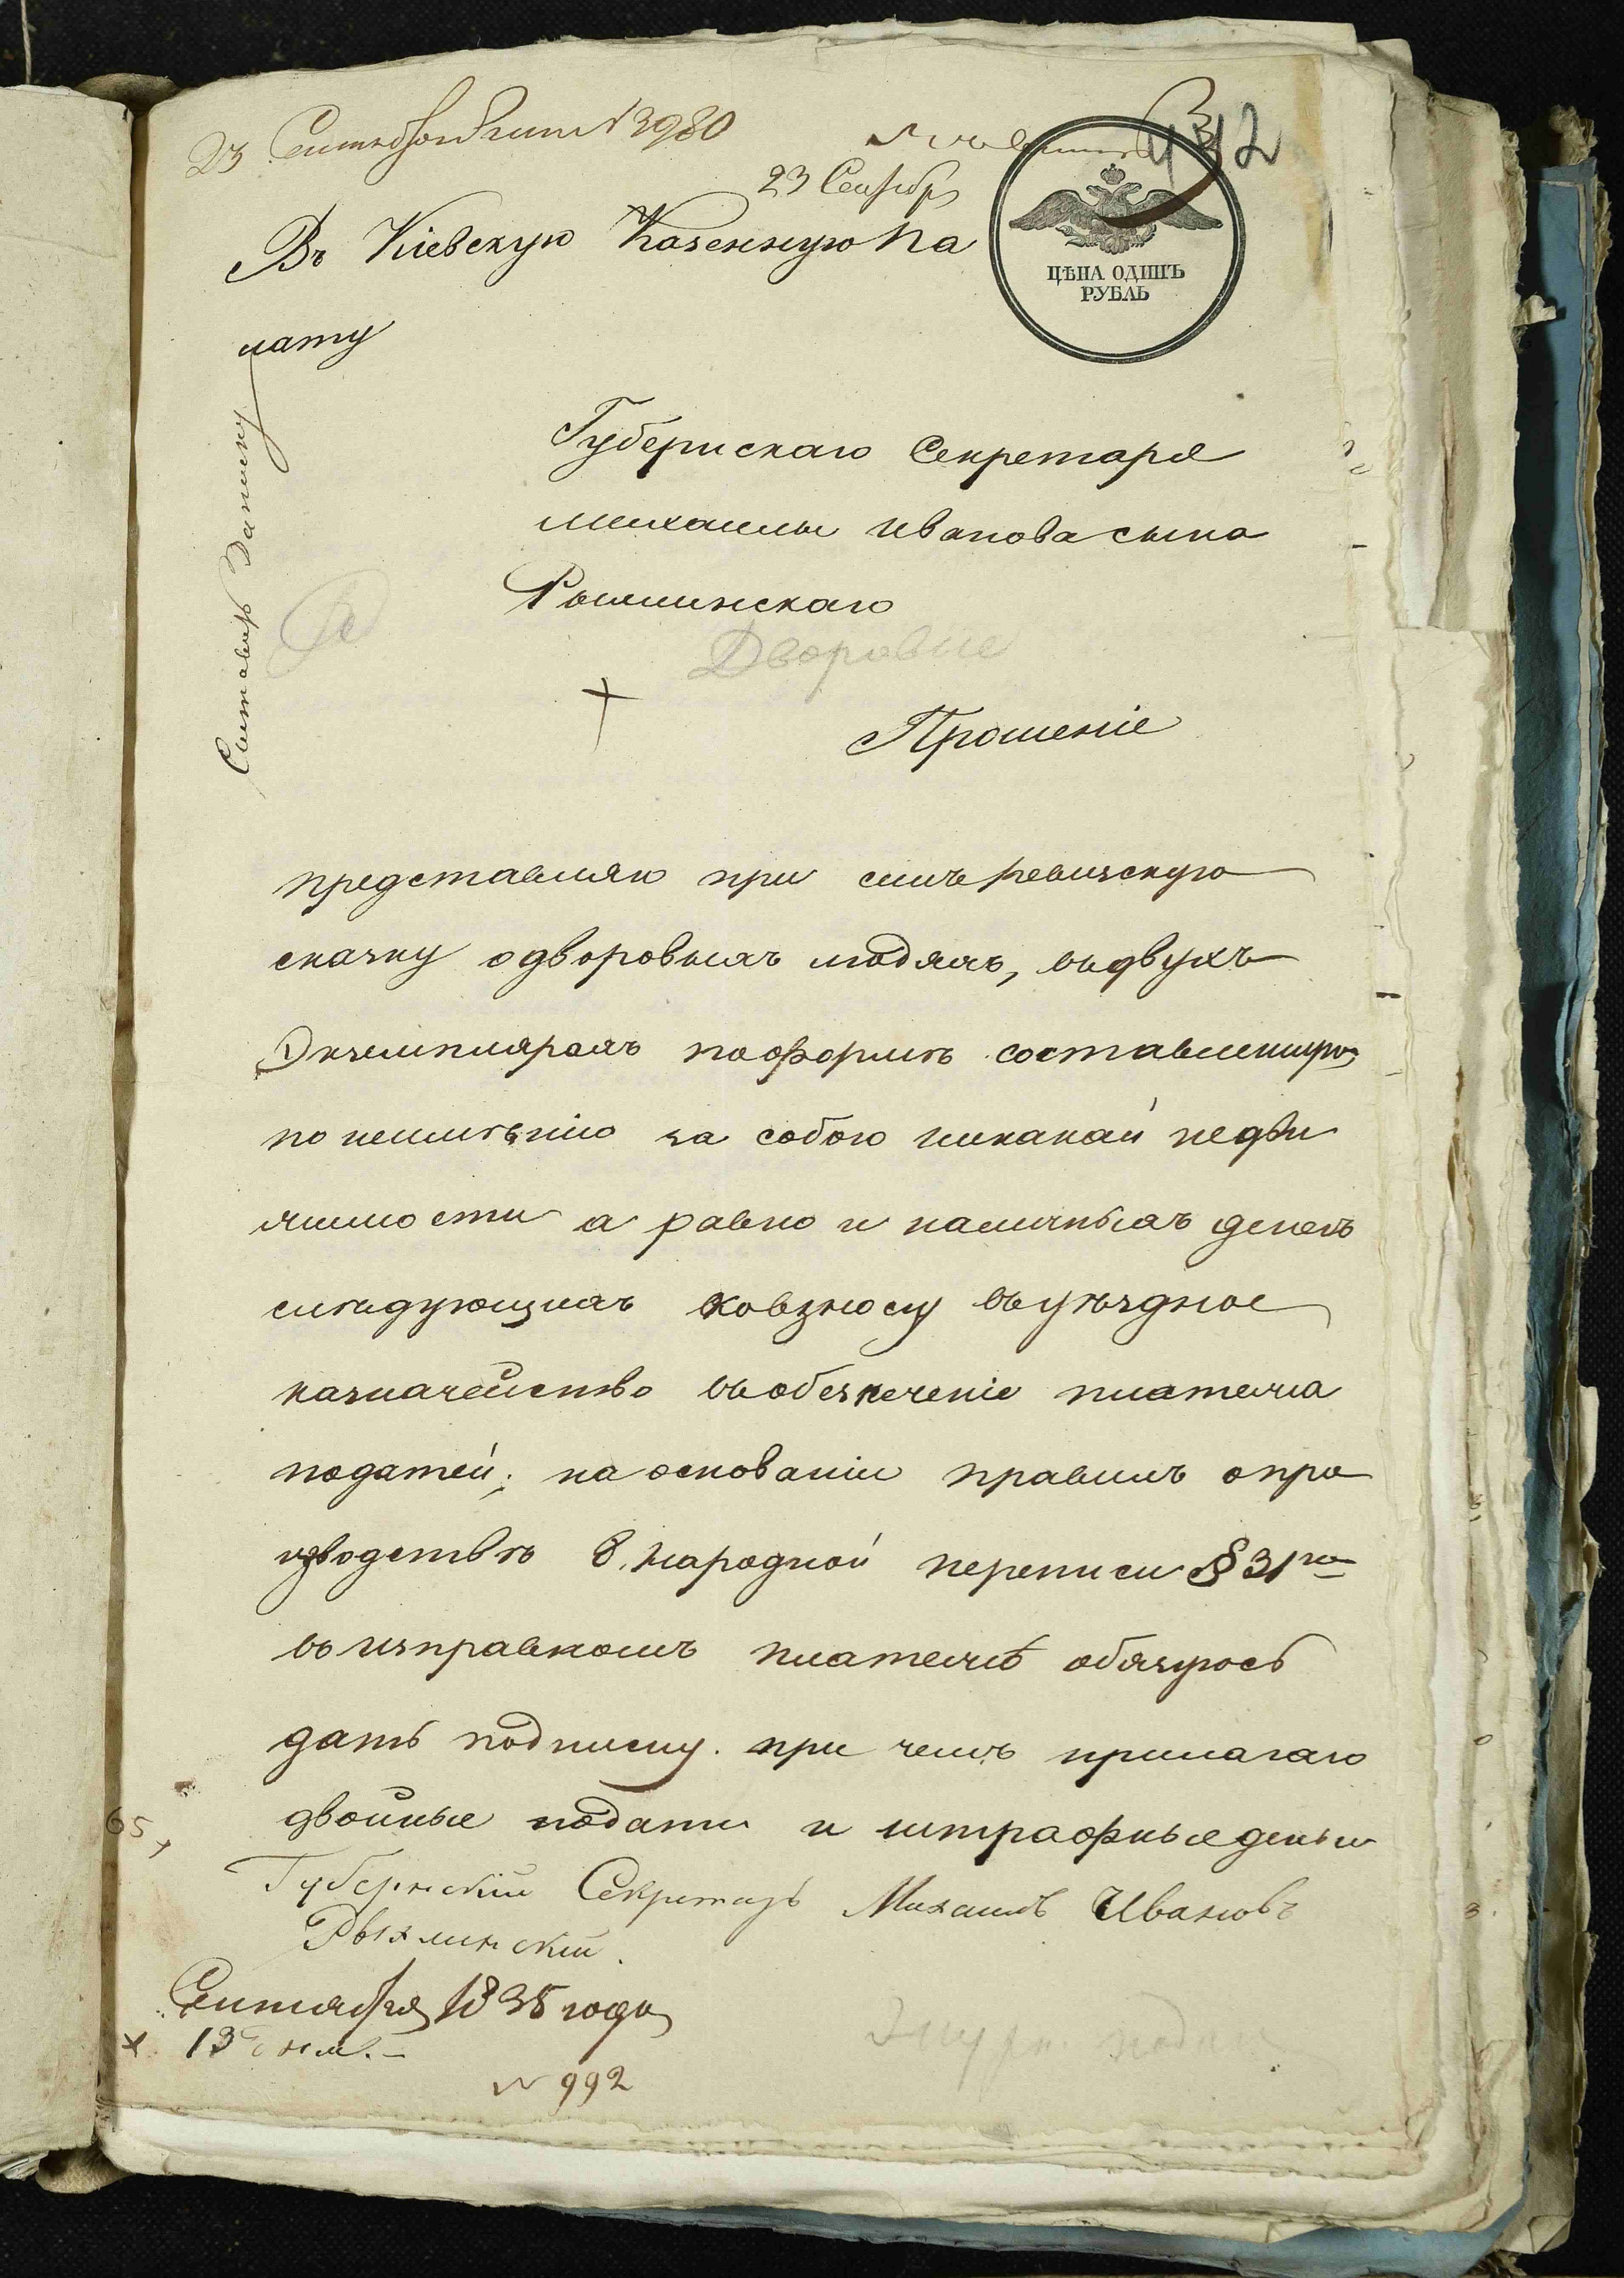 23 Сентября № 13980
23 Сентябр
432
Въ Кіевскую Казенную Па
лату
ЦѢНА ОДИНЪ
РУБЛЬ
Составить Записку
Губернскаго Секретаря
михаилы иванова сына
Рыхлинскаго
Дворовые
Прошеніе
представляю при симъ ревизскую
сказку одворовыхъ людяхъ, въдвухъ
Экземплярахъ поформѣ составленную,
по неимѣнію за собою никакай недви
жимости а равно и наличныхъ денегъ
слѣдующихъ ковзносу въуѣздное
казначейство въобезпеченіе платежа
податей; на основаніи правилъ опро
изводствѣ 8. народной переписи § 31го
въ изправномъ платежѣ обязуюсь
дать подписку. при чемъ прилагаю
двойные подати и штрафные деньги
Губернскій Секретарь Михаилъ Ивановъ
Рыхлинскій.
Сентября 1835 года
13 дня.
№ 992
65